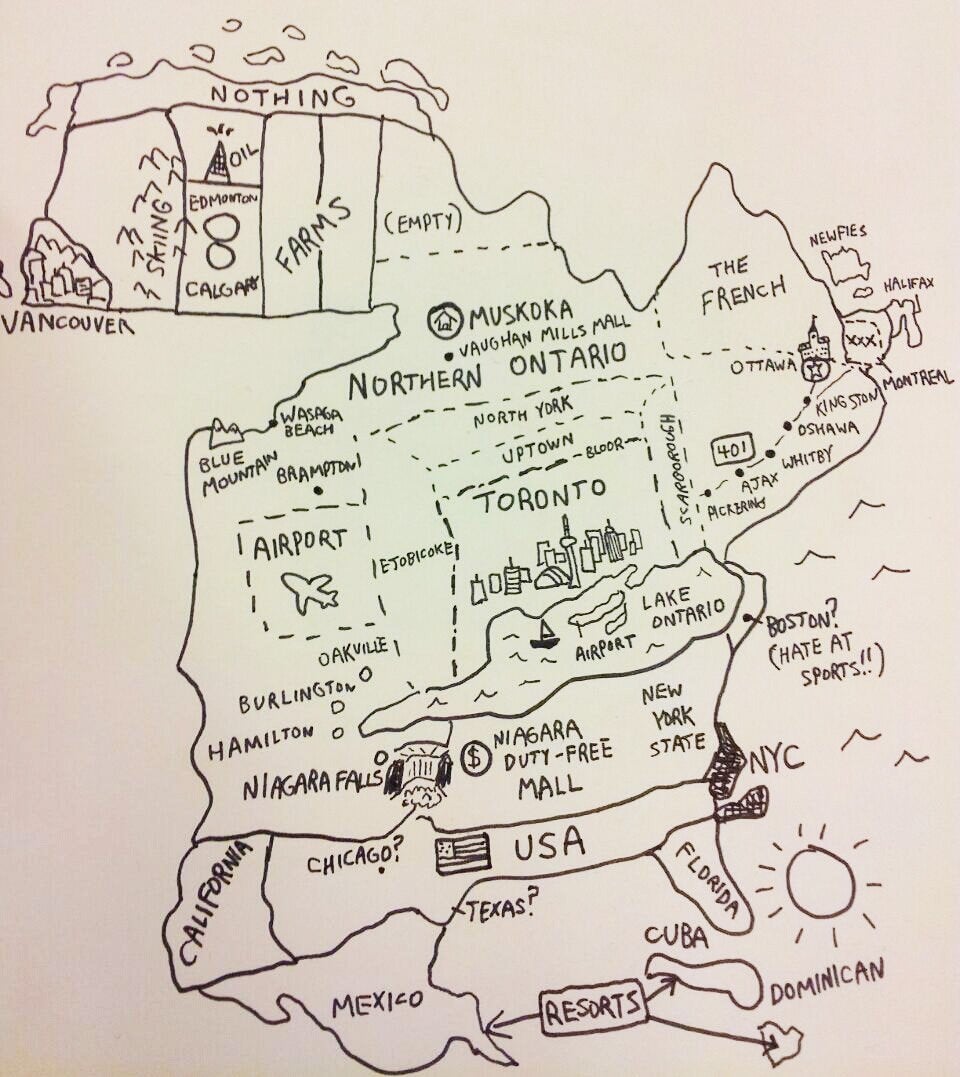 NOTHING
OIL
EDMONTON
CALGARY
SKIING
FARMS
(EMPTY)
VANCOUVER
THE
FRENCH
NEWFIES
HALIFAX
XXX
MONTREAL
OTTAWA
KINGSTON
OSHAWA
WHITBY
401
AJAX
PICKERING
MUSKOKA
VAUGHAN MILLS MALL
NORTHERN ONTARIO
WASAGA
BEACH
BLUE
MOUNTAIN
BRAMPTON
NORTH YORK
UPTOWN
BLOOR
SCARBOROUGH
TORONTO
AIRPORT
ETOBICOKE
LAKE
ONTARIO
AIRPORT
BOSTON?
(HATE AT
SPORTS!!)
OAKVILLE
BURLINGTON
HAMILTON
NIAGARA FALLS
$
NIAGARA
DUTY-FREE
MALL
NEW
YORK
STATE
NYC
CALIFORNIA
CHICAGO?
USA
TEXAS?
FLORIDA
CUBA
DOMINICAN
MEXICO
RESORTS